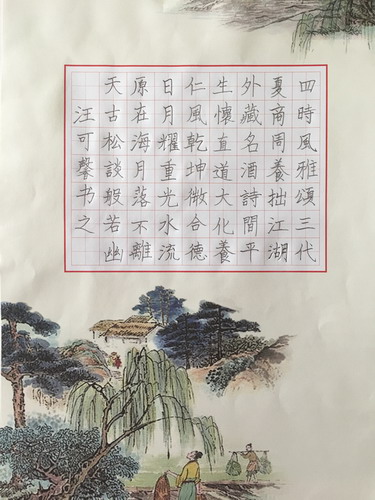 四時風雅頌三代
夏商周養拙江湖
外藏名酒詩間平
生懷直道大化養
仁風乾坤微合德
日月耀重光水流
原在海月落不離
天古松談般若幽
汪可馨书之